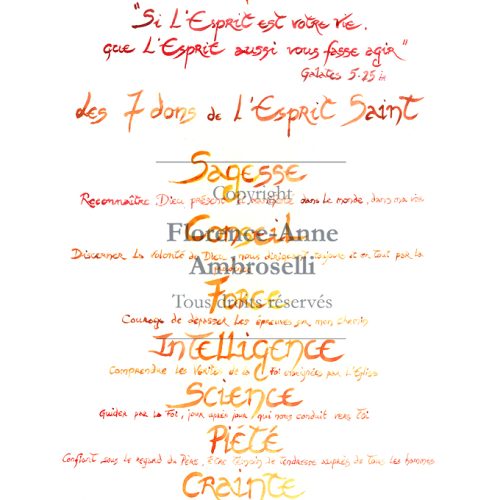 "Si l'Esprit est votre vie,
que l'Esprit aussi vous fasse agir"
Galates 5-25
Les 7 dons de l'Esprit Saint
Sagesse
Copyright
Reconnaître Dieu présent dans le monde, dans ma vie
Florence-Anne
Conseil
Discerner la volonté de Dieu, nous dirigeant toujours et en tout par la
Ambroselli
Force
Tous droits réservés
Courage de dépasser les épreuves en mon chemin
Intelligence
Comprendre les Vérités de la Foi enseignées par l'Eglise
Science
Guider par la Foi, jour après jour qui nous conduit vers toi
Piété
Confiant sous le regard du Père, être témoin de tendresse auprès de tous les hommes
Crainte